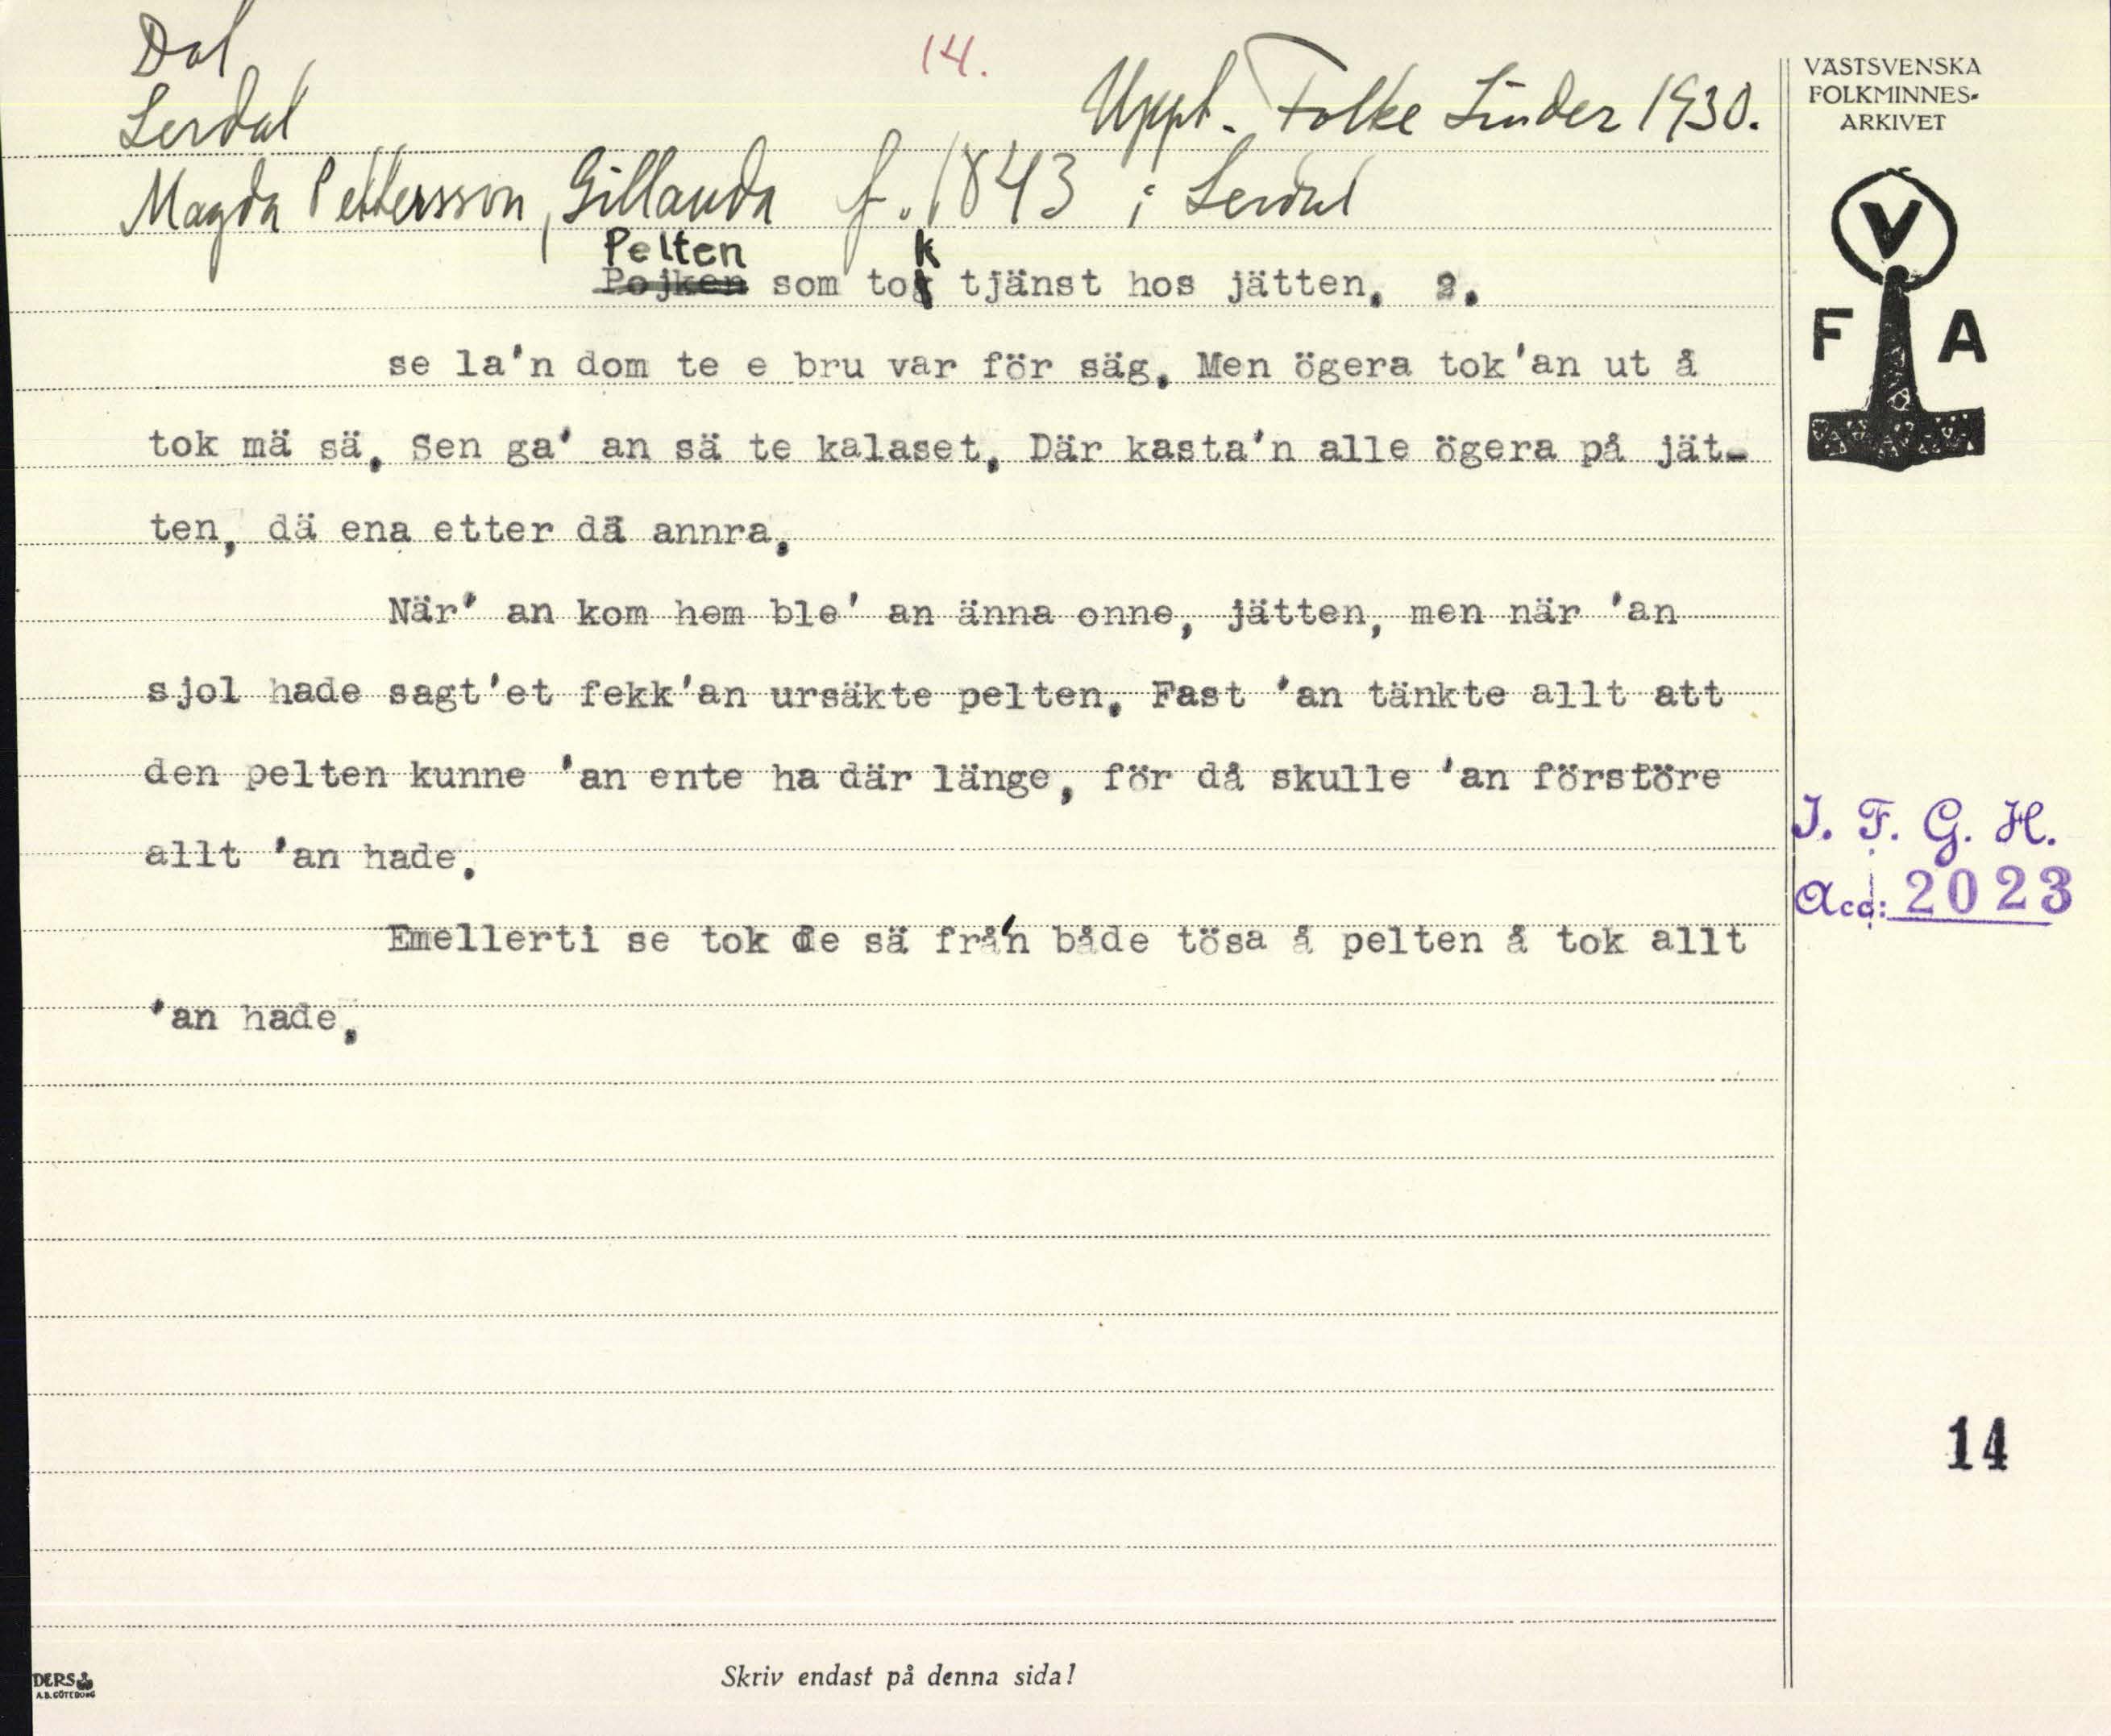 Dal
14.
Lerdal
Uppt. Folke Linder 1930.
Magda Pettersson, Gillanda f. 1843 i Lerdal
VÄSTSVENSKA
FOLKMINNES-
ARKIVET
V
F A
Pelten k
Pojken som tog tjänst hos jätten. 2.
se la'n dom te e bru var för säg. Men ögera tok'an ut å
tok mä sä. Sen ga' an sä te kalaset. Där kasta'n alle ögera på jät-
ten, dä ena etter dä annra.
När' an kom hem ble' an änna onne, jätten, men när 'an
sjol hade sagt'et fekk'an ursäkte pelten. Fast 'an tänkte allt att
den pelten kunne 'an ente ha där länge, för då skulle 'an förstöre
allt 'an hade.
Emellerti se tok de sä frå'n både tösa å pelten å tok allt
'an hade.
I. F. G. H.
Acc: 2023
14
Skriv endast på denna sida!
DERS
A.B. GÖTEBORG